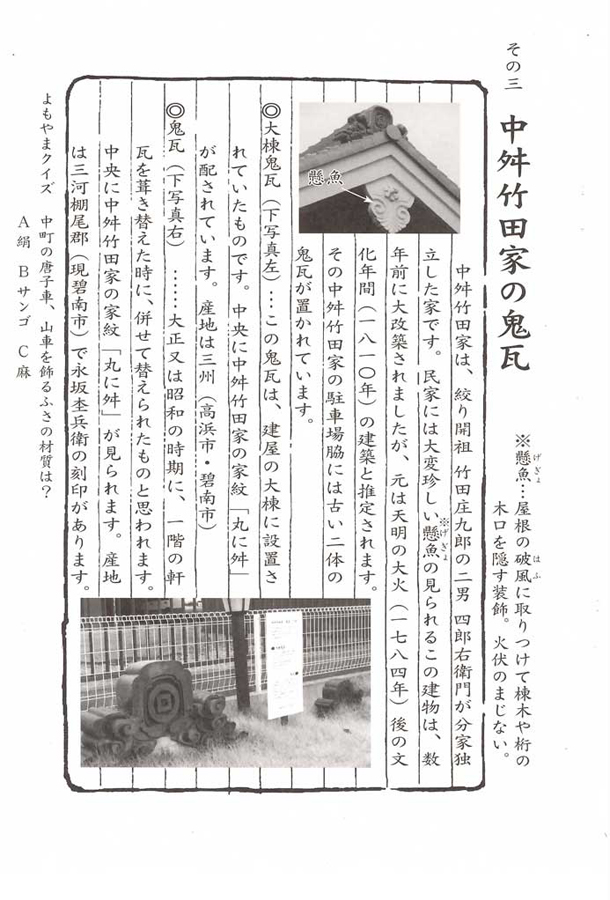 その三　中舛竹田家の鬼瓦
※懸魚…屋根の破風に取りつけて棟木や桁の
げぎょ
はふ
木口を隠す装飾。火伏のまじない。
中舛竹田家は、絞り開祖 竹田庄九郎の二男 四郎右衛門が分家独
立した家です。民家には大変珍しい※懸魚の見られるこの建物は、数
げぎょ
年前に大改築されましたが、元は天明の大火（一七八四年）後の文
化年間（一八一〇年）の建築と推定されます。
その中舛竹田家の駐車場脇には古い二体の
鬼瓦が置かれています。
懸魚
◎大棟鬼瓦（下写真左）…この鬼瓦は、建屋の大棟に設置さ
れていたものです。中央に中舛竹田家の家紋「丸に舛」
が配されています。産地は三州（高浜市・碧南市）
◎鬼瓦（下写真右）……大正又は昭和の時期に、一階の軒
瓦を葺き替えた時に、併せて替えられたものと思われます。
中央に中舛竹田家の家紋「丸に舛」が見られます。産地
は三河棚尾郡（現碧南市）で永坂杢兵衛の刻印があります。
よもやまクイズ　中町の唐子車、山車を飾るふさの材質は？
A 絹　B サンゴ　C 麻